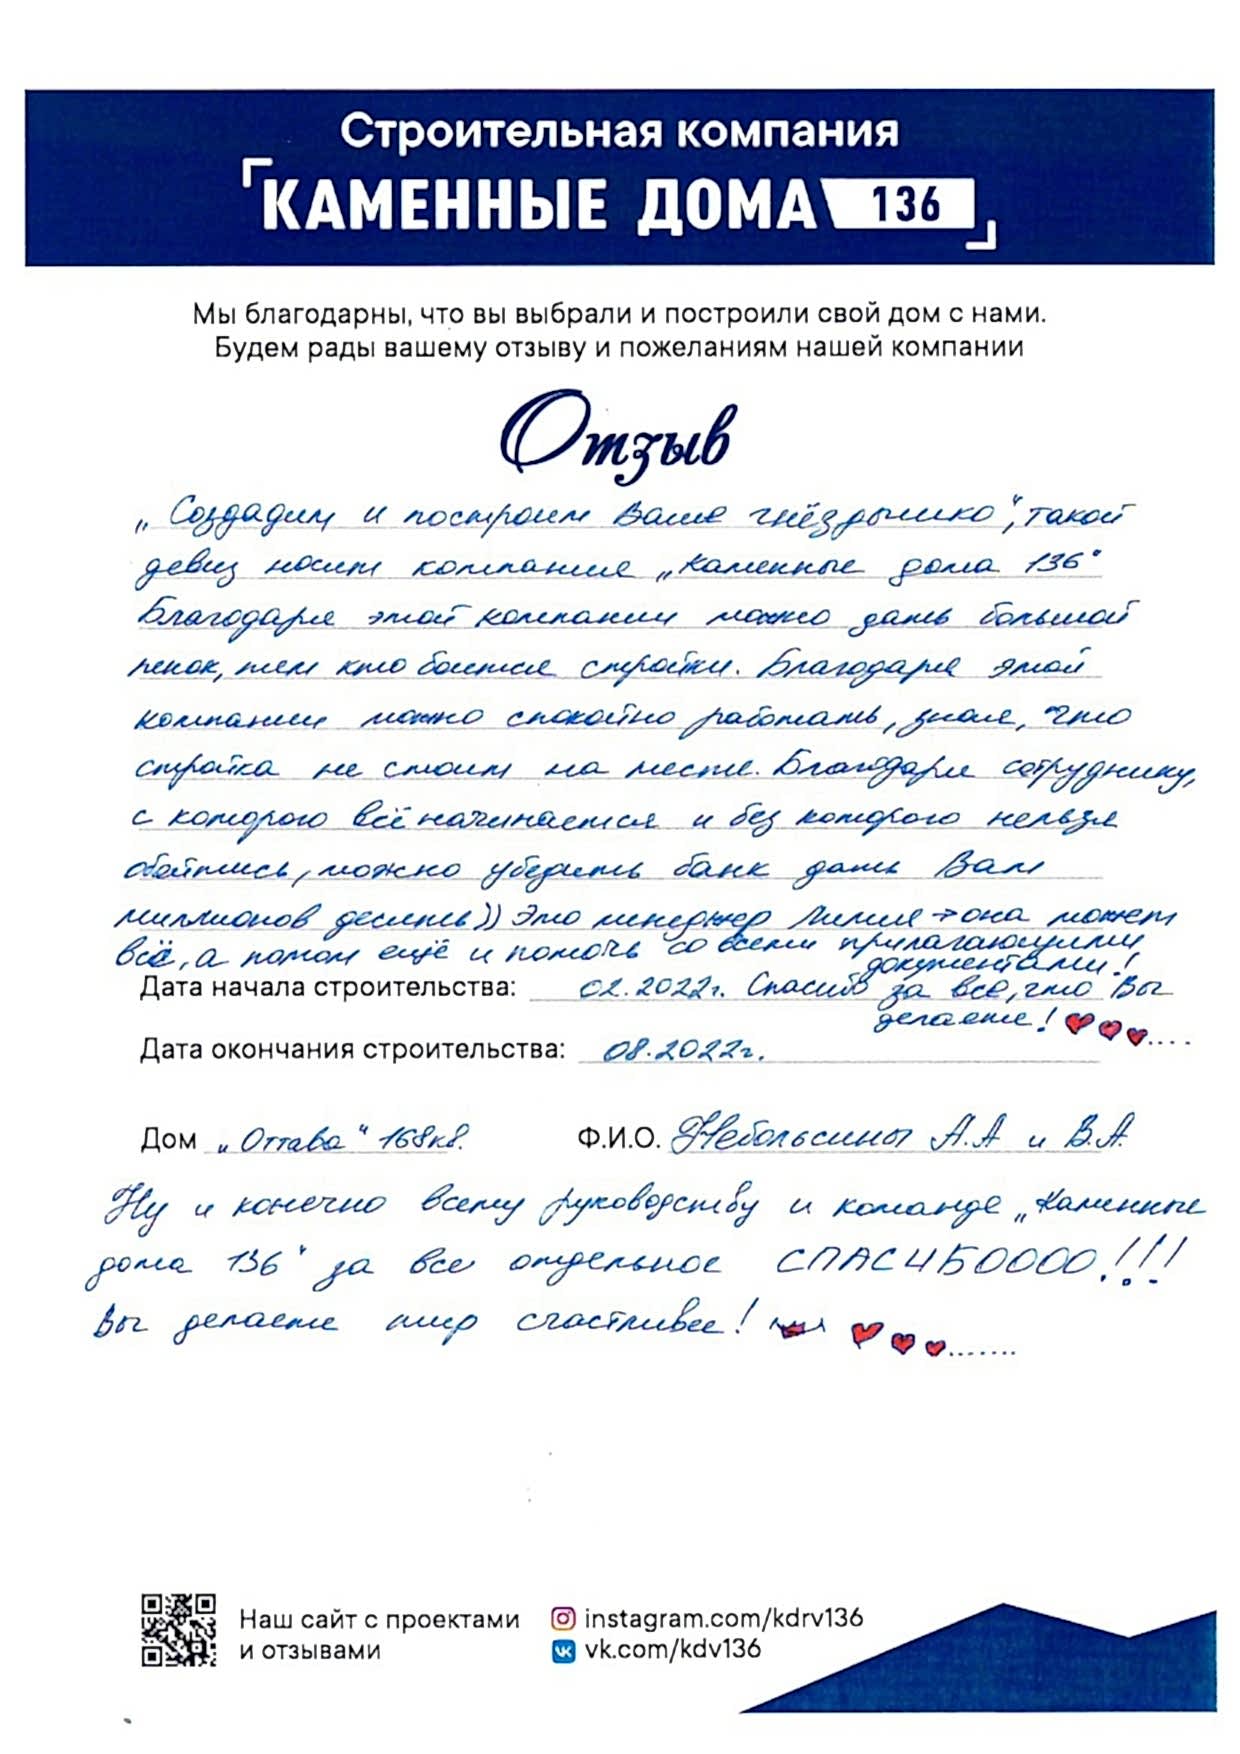 Строительная компания
КАМЕННЫЕ ДОМА 136
Мы благодарны, что вы выбрали и построили свой дом с нами.
Будем рады вашему отзыву и пожеланиям нашей компании
Отзыв
„Создадим и построим Ваше гнёздышко“, такой
девиз носит компания „Каменные дома 136“
Благодаря этой компании можно дать большой
пенок, тем кто боится стройки. Благодаря этой
компании можно спокойно работать, зная, что
стройка не стоит на месте. Благодаря сотруднику,
с которого всё начинается и без которого нельзя
обойтись, можно убедить банк дать Вам
миллионов десять)) Это менеджер Лилия → она может
всё, а потом ещё и помочь со всеми прилагающими
документами!
Дата начала строительства: 02.2022г. Спасибо за все, что Вы
делаете!
Дата окончания строительства: 08.2022г.
Дом „Оттава“ 168кв. Ф.И.О. Небольсины А.А и В.А.
Ну и конечно всему руководству и команде „Каменные
дома 136“ за все отдельное СПАСИБОООО!!!
Вы делаете мир счастливее!
Наш сайт с проектами
и отзывами
instagram.com/kdrv136
vk.com/kdv136